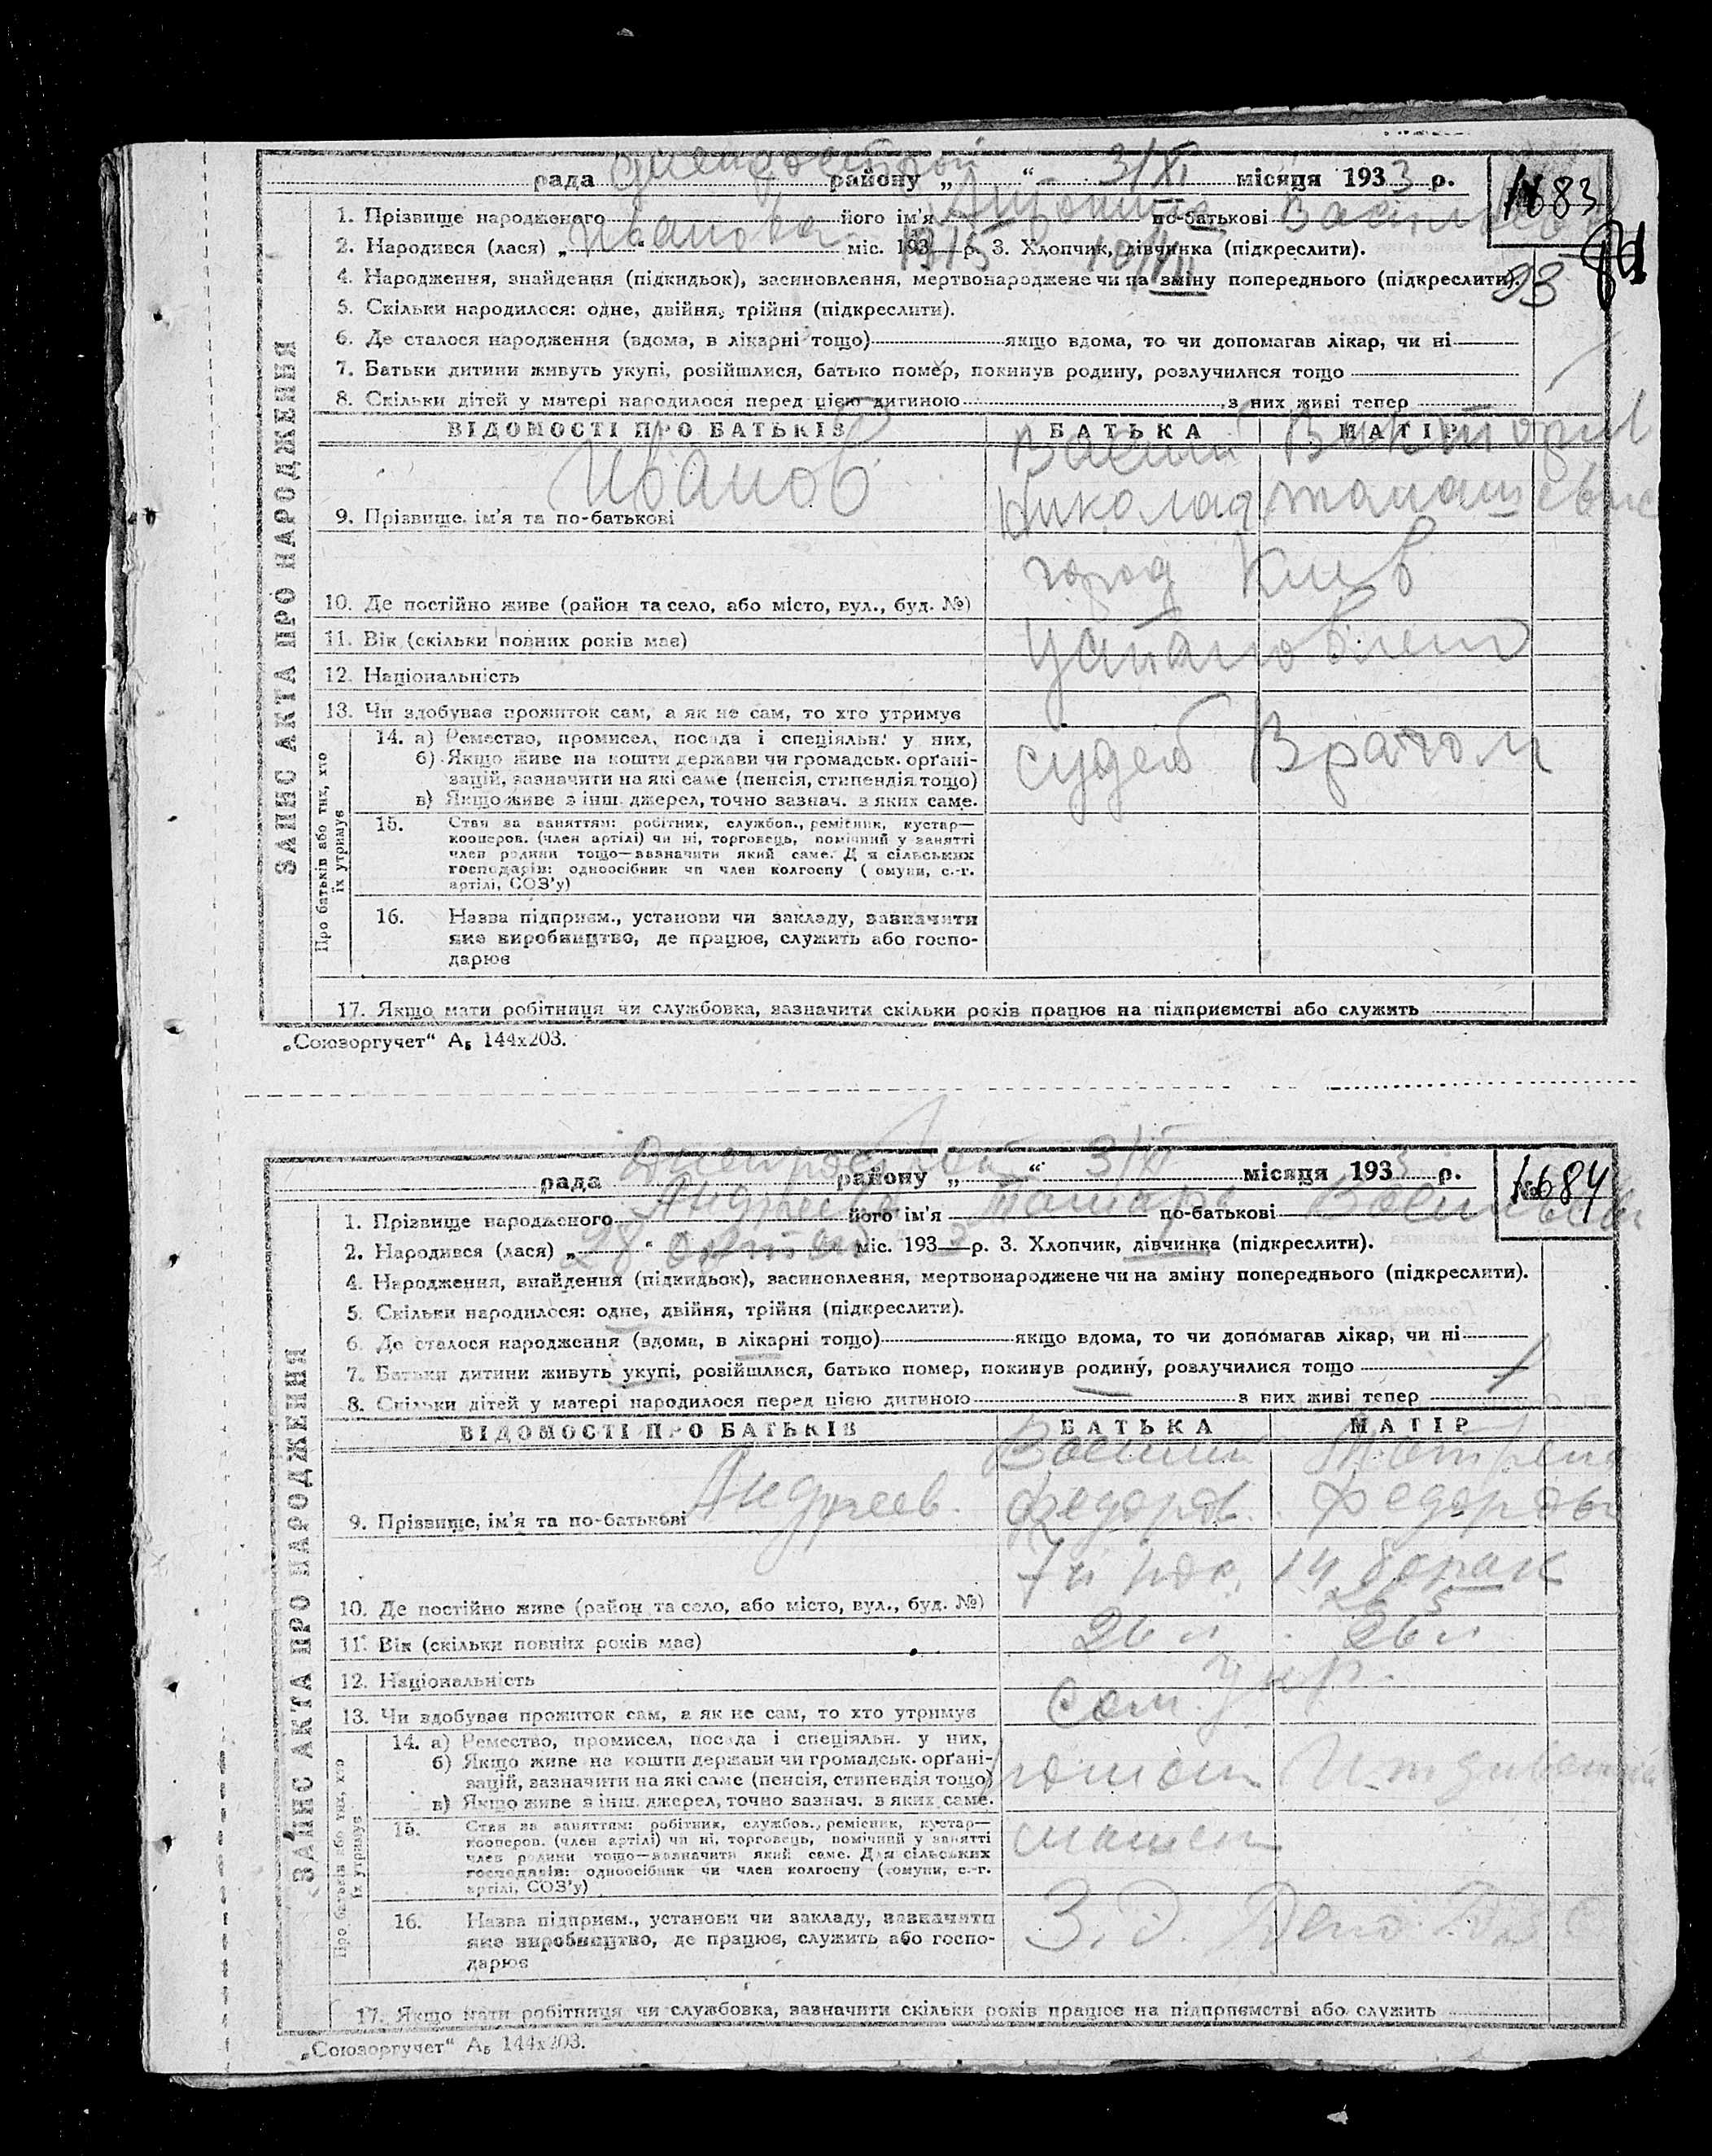 рада Днепрострой району „ “ 3/XI місяця 1933 р.
1683
1. Прізвище народженого Иванова його ім'я по-батькові
2. Народився (лася) „ “ міс. 193 р. 3. Хлопчик, дівчинка (підкреслити).
4. Народження, знайдення (підкидьок), засиновлення, мертвонароджене чи на зміну попереднього (підкреслити).
93
5. Скільки народилося: одне, двійня, трійня (підкреслити).
6. Де сталося народження (вдома, в лікарні тощо) якщо вдома, то чи допомагав лікар, чи ні
7. Батьки дитини живуть укупі, розійшлися, батько помер, покинув родину, розлучилися тощо
8. Скільки дітей у матері народилося перед цією дитиною , з них живі тепер
ВІДОМОСТІ ПРО БАТЬКІВ БАТЬКА МАТІР
Иванов Васили
9. Прізвище, ім'я та по-батькові Николай
город Киев
10. Де постійно живе (район та село, або місто, вул., буд. №)
11. Вік (скільки повних років має)
12. Національність
13. Чи здобуває прожиток сам, а як не сам, то хто утримує
14. а) Ремество, промисел, посада і спеціяльн. у них,
б) Якщо живе на кошти держави чи громадськ. орґані-
зацій, зазначити на які саме (пенсія, стипендія тощо)
в) Якщо живе з інш. джерел, точно зазнач. з яких саме.
судеб Врачом
15. Стан за заняттям: робітник, службов., ремісник, кустар—
кооперов. (член артілі) чи ні, торговець, помічний у занятті
член родини тощо—зазначити який саме. Для сільських
господарів: одноосібник чи член колгоспу (комуни, с.-г.
артілі, СОЗ'у)
16. Назва підприєм., установи чи закладу, зазначити
яке виробництво, де працює, служить або госпо-
дарює
17. Якщо мати робітниця чи службовка, зазначити скільки років працює на підприємстві або служить
ЗАПИС АКТА ПРО НАРОДЖЕННЯ
Про батьків або тих, хто
їх утримує
„Союзоргучет“ А₅ 144х203.
рада Днепрострой району „ “ 3/XI місяця 1933 р.
1684
1. Прізвище народженого Андреева його ім'я Тамара по-батькові
2. Народився (лася) „28“ октяб міс. 1933 р. 3. Хлопчик, дівчинка (підкреслити).
4. Народження, знайдення (підкидьок), засиновлення, мертвонароджене чи на зміну попереднього (підкреслити).
5. Скільки народилося: одне, двійня, трійня (підкреслити).
6. Де сталося народження (вдома, в лікарні тощо) якщо вдома, то чи допомагав лікар, чи ні
7. Батьки дитини живуть укупі, розійшлися, батько помер, покинув родину, розлучилися тощо
8. Скільки дітей у матері народилося перед цією дитиною з них живі тепер
ВІДОМОСТІ ПРО БАТЬКІВ БАТЬКА МАТІР
Васили
9. Прізвище, ім'я та по-батькові Андреев. Федоров. Федоровн
14 барак
10. Де постійно живе (район та село, або місто, вул., буд. №)
11. Вік (скільки повних років має) 26 л 26 л
12. Національність укр.
13. Чи здобуває прожиток сам, а як не сам, то хто утримує сам.
14. а) Ремество, промисел, посада і спеціяльн. у них,
б) Якщо живе на кошти держави чи громадськ. орґані-
зацій, зазначити на які саме (пенсія, стипендія тощо)
в) Якщо живе з інш. джерел, точно зазнач. з яких саме.
15. Стан за заняттям: робітник, службов., ремісник, кустар—
кооперов. (член артілі) чи ні, торговець, помічний у занятті
член родини тощо—зазначити який саме. Для сільських
господарів: одноосібник чи член колгоспу (комуни, с.-г.
артілі, СОЗ'у)
16. Назва підприєм., установи чи закладу, зазначити
яке виробництво, де працює, служить або госпо-
дарює
17. Якщо мати робітниця чи службовка, зазначити скільки років працює на підприємстві або служить
ЗАПИС АКТА ПРО НАРОДЖЕННЯ
Про батьків або тих, хто
їх утримує
„Союзоргучет“ А₅ 144х203.